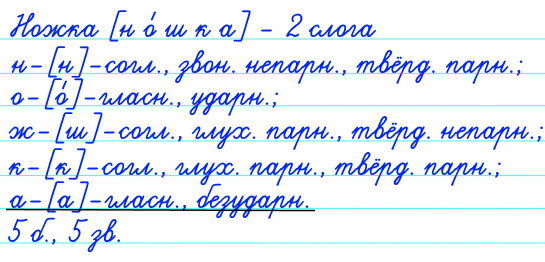 Ножка [н о́ ш к а] - 2 слога
н-[н]-согл., звон. непарн., твёрд. парн.;
о-[о́]-гласн., ударн.;
ж-[ш]-согл., глух. парн., твёрд. непарн.;
к-[к]-согл., глух. парн., твёрд. парн.;
а-[а]-гласн., безударн.
5 б., 5 зв.